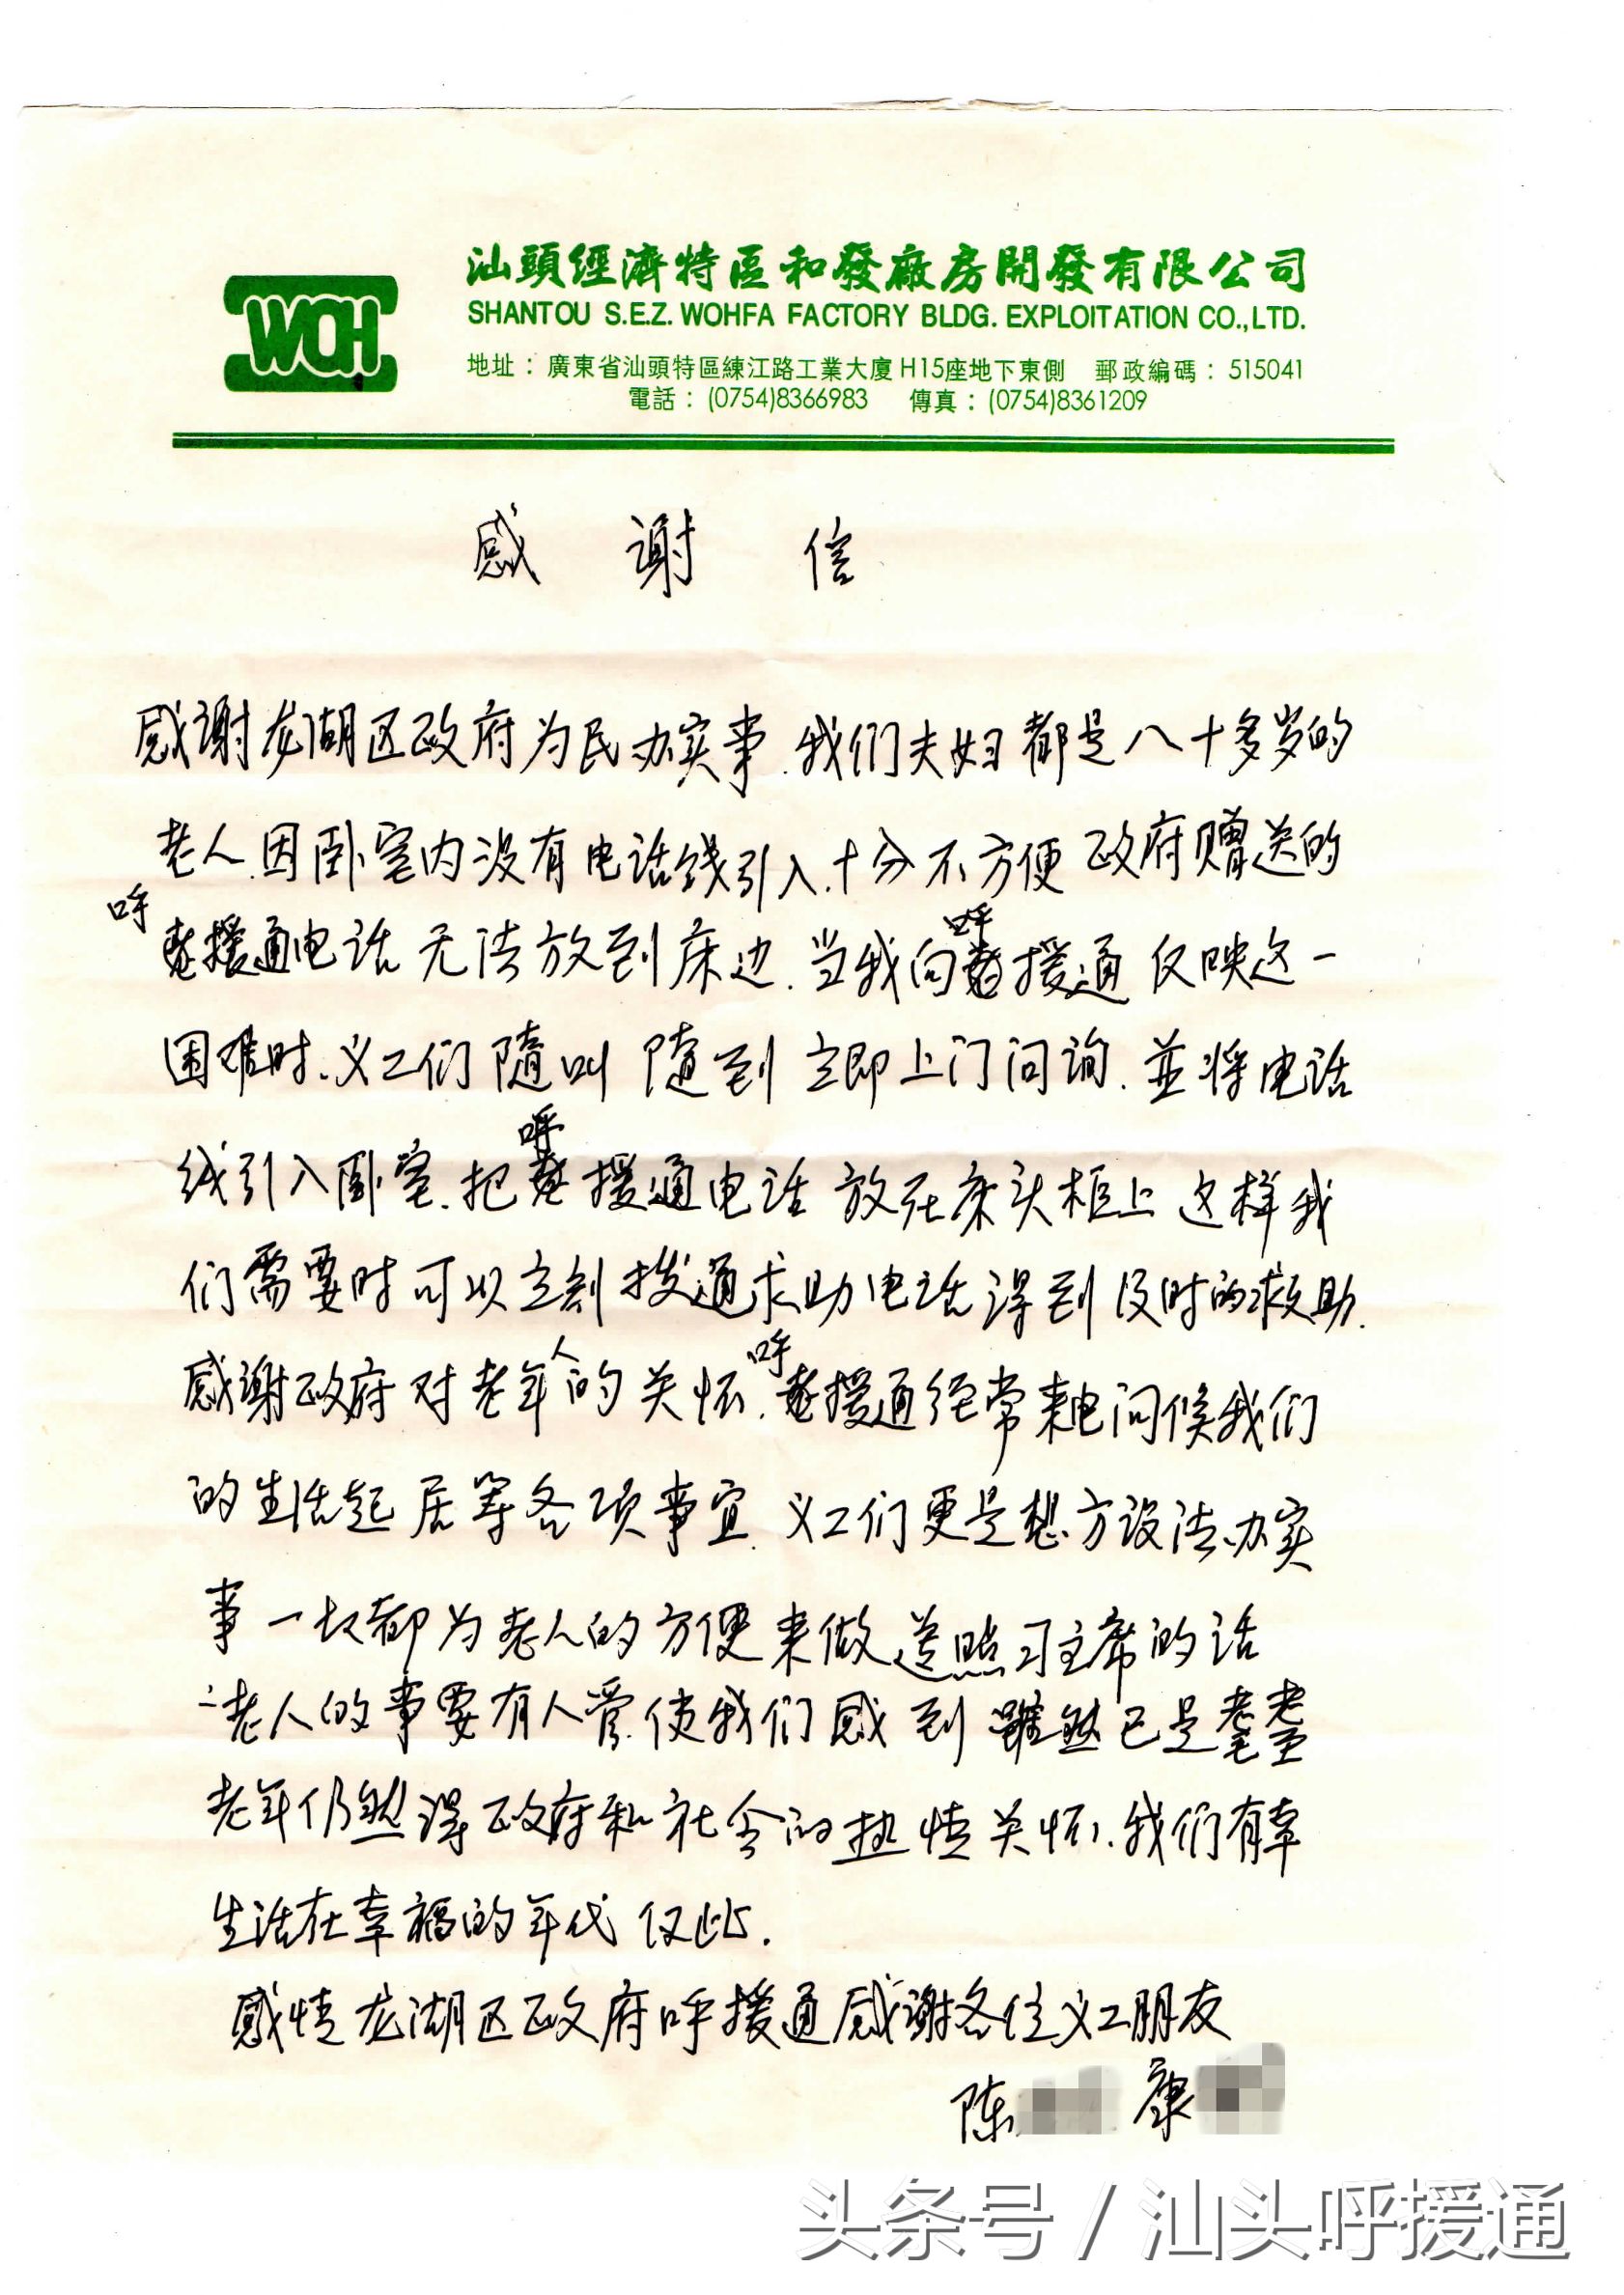 WOH
汕頭經濟特區和發廠房開發有限公司
SHANTOU S.E.Z. WOHFA FACTORY BLDG. EXPLOITATION CO.,LTD.
地址：廣東省汕頭特區練江路工業大廈H15座地下東側 郵政編碼：515041
電話：(0754)8366983 傳真：(0754)8361209
感谢信
感谢龙湖区政府为民办实事.我们夫妇都是八十多岁的
老人.因卧室内没有电话线引入.十分不方便 政府赠送的
呼援通电话无法放到床边.当我向呼援通反映这一
困难时.义工们随叫随到立即上门问询.並将电话
线引入卧室.把呼援通电话放在床头柜上 这样我
们需要时可以立刻拨通求助电话得到及时的救助.
感谢政府对老年人的关怀.呼援通经常来电问候我们
的生活起居等各项事宜.义工们更是想方设法办实
事一切都为老人的方便来做 遵照习主席的话
老人的事要有人管.使我们感到虽然已是耄耋
老年仍然得政府和社会的热情关怀.我们有幸
生活在幸福的年代 仅此.
感情龙湖区政府呼援通感谢各位义工朋友
陈 康
头条号 / 汕头呼援通